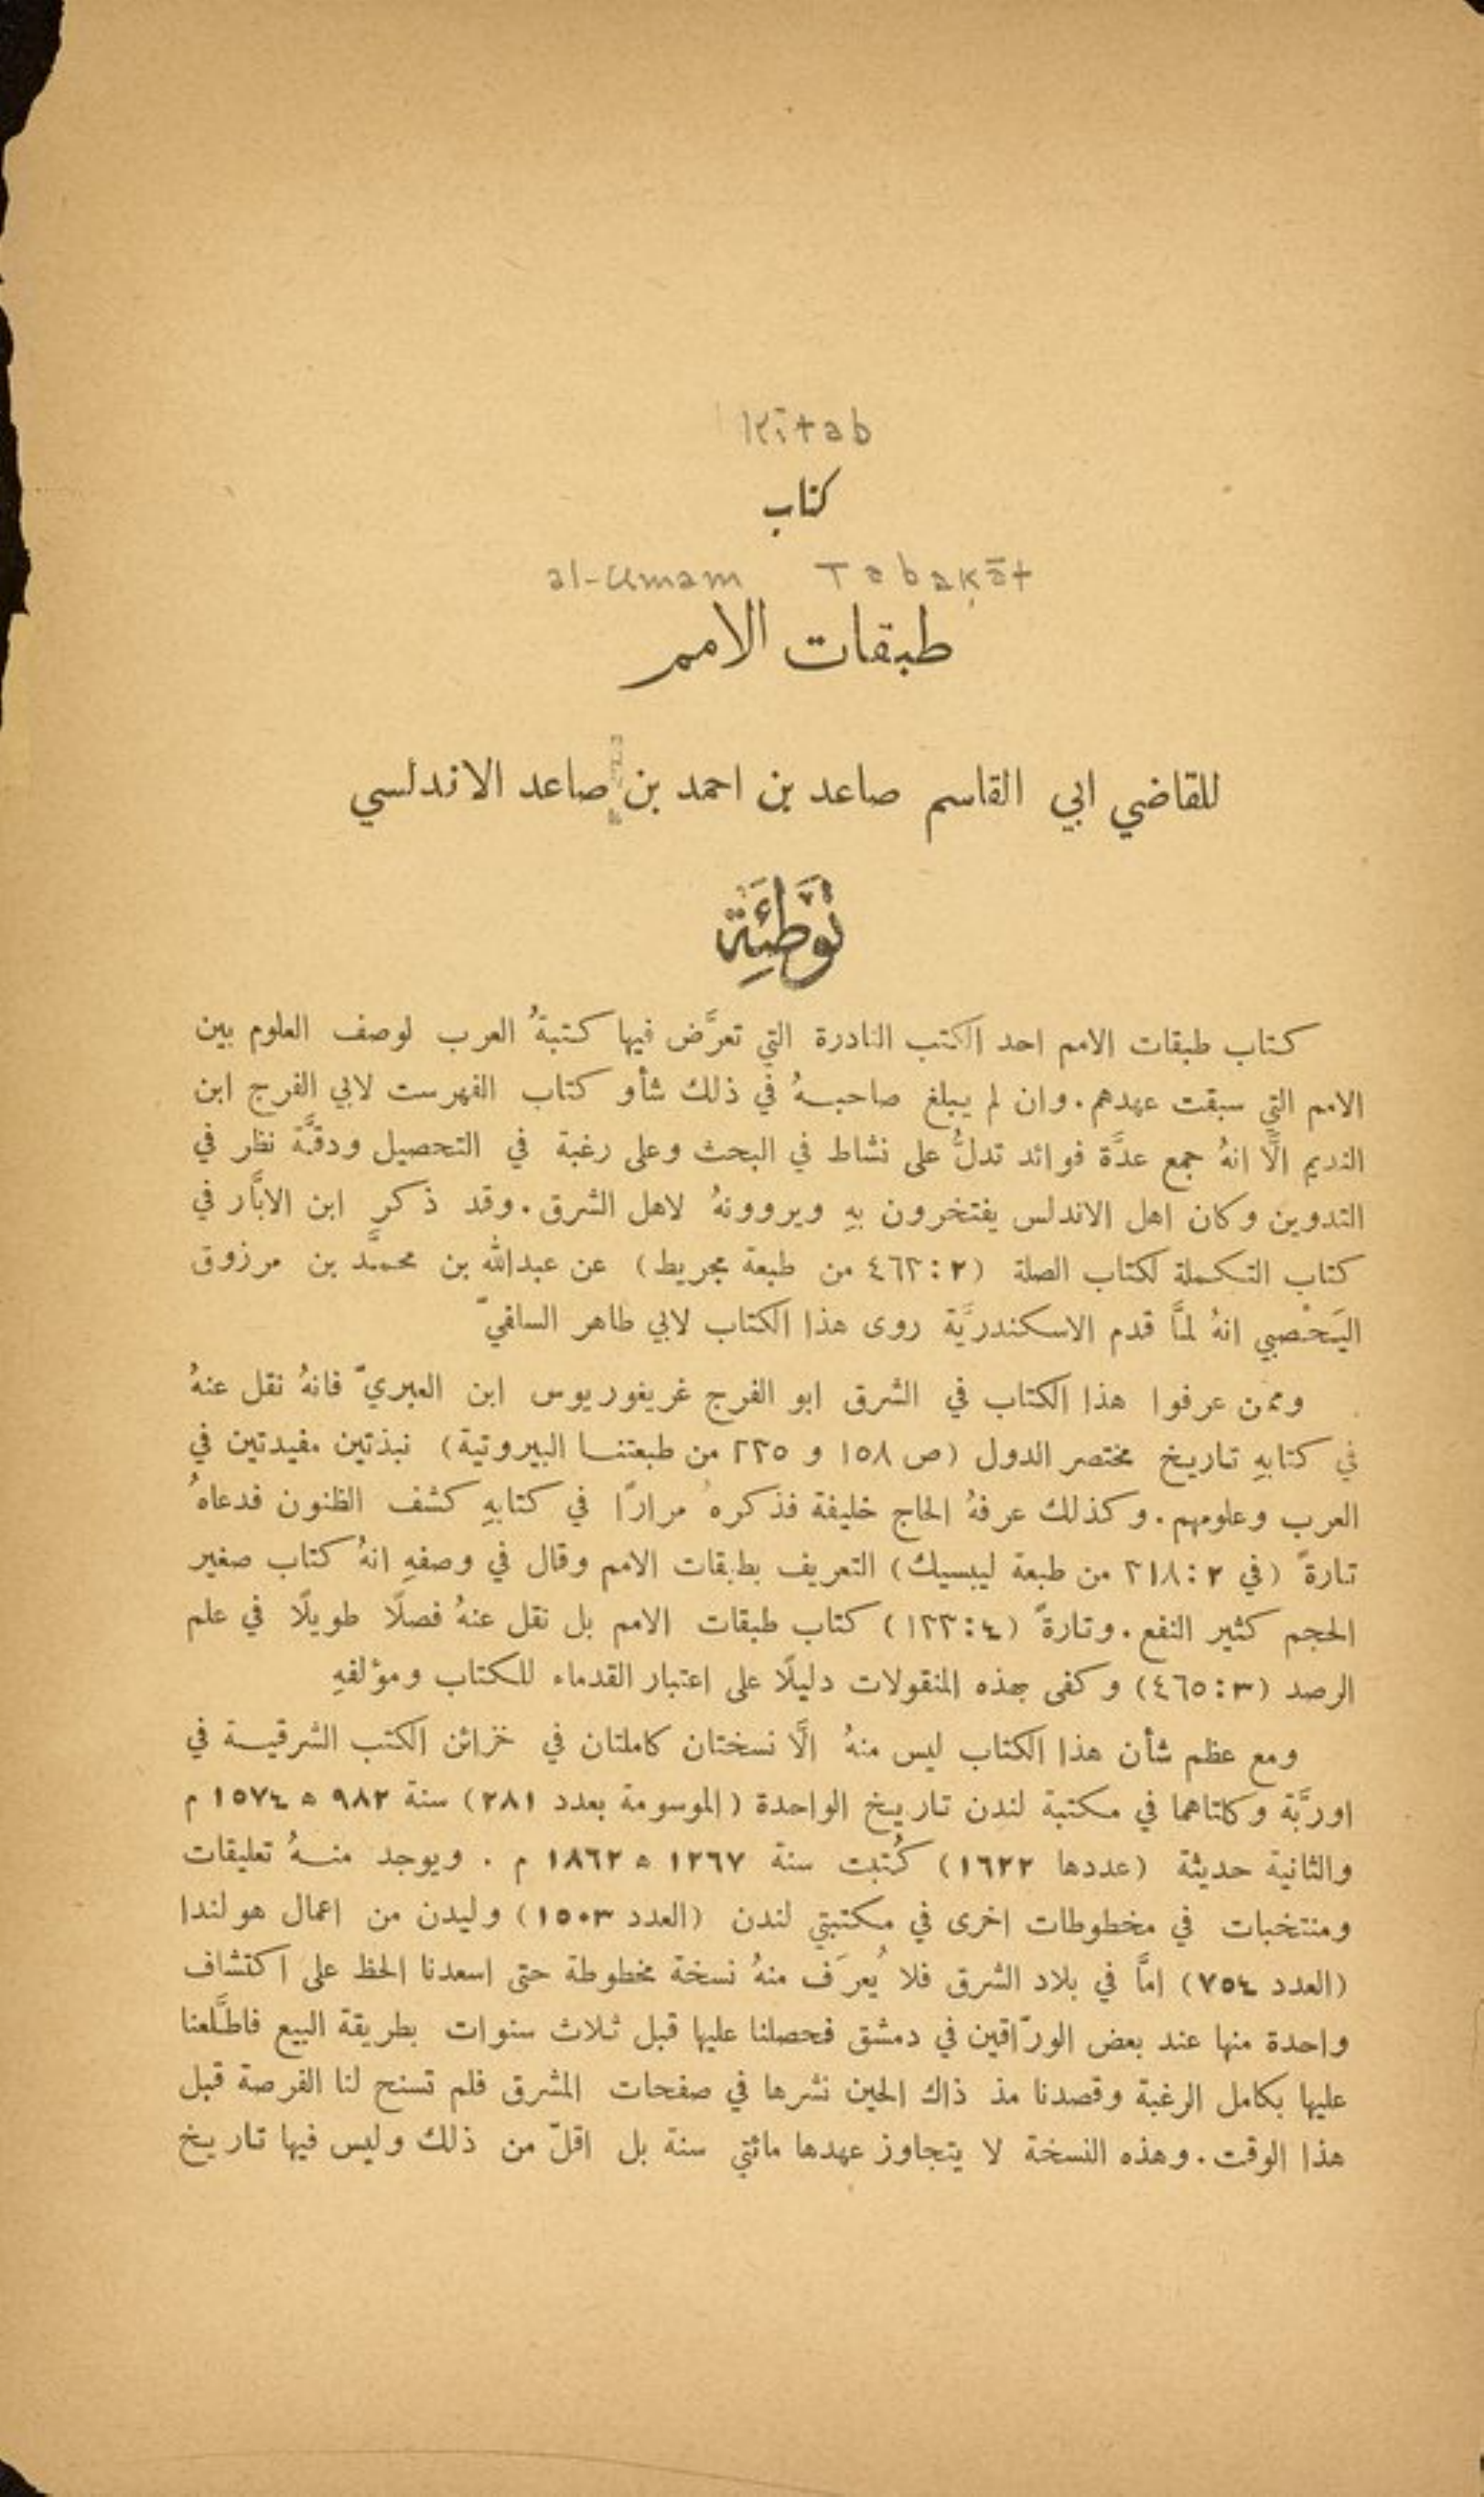 Kitab
كتاب
al-Umam Tabaḳāt
طبقات الامم
للقاضي ابي القاسم صاعد بن احمد بن صاعد الاندلسي
تَوْطِئَة
كتاب طبقات الامم احد الكتب النادرة التي تعرَّض فيها كتبةُ العرب لوصف العلوم بين
الامم التي سبقت عهدهم. وان لم يبلغ صاحبهُ في ذلك شأو كتاب الفهرست لابي الفرج ابن
النديم الَّا انهُ جمع عدَّة فوائد تدلُّ على نشاط في البحث وعلى رغبة في التحصيل ودقَّة نظر في
التدوين وكان اهل الاندلس يفتخرون بهِ ويروونهُ لاهل الشرق. وقد ذكر ابن الابَّار في
كتاب التكملة لكتاب الصلة (٢: ٤٦٢ من طبعة مجريط) عن عبدالله بن محمَّد بن مرزوق
اليَحْصبي انهُ لمَّا قدم الاسكندريَّة روى هذا الكتاب لابي طاهر السلفيّ
وممن عرفوا هذا الكتاب في الشرق ابو الفرج غريغوريوس ابن العبريّ فانهُ نقل عنهُ
في كتابهِ تاريخ مختصر الدول (ص ١٥٨ و ٢٣٥ من طبعتنا البيروتية) نبذتين مفيدتين في
العرب وعلومهم. وكذلك عرفهُ الحاج خليفة فذكرهُ مرارًا في كتابهِ كشف الظنون فدعاهُ
تارةً (في ٢: ٣١٨ من طبعة ليبسيك) التعريف بطبقات الامم وقال في وصفهِ انهُ كتاب صغير
الحجم كثير النفع. وتارةً (٤: ١٣٣) كتاب طبقات الامم بل نقل عنهُ فصلًا طويلًا في علم
الرصد (٣: ٤٦٥) وكفى بهذه المنقولات دليلًا على اعتبار القدماء للكتاب ومؤلفهِ
ومع عظم شأن هذا الكتاب ليس منهُ الَّا نسختان كاملتان في خزائن الكتب الشرقية في
اوربَّة وكلتاهما في مكتبة لندن تاريخ الواحدة (الموسومة بعدد ٢٨١) سنة ٩٨٢ ه ١٥٧٤ م
والثانية حديثة (عددها ١٦٢٢) كُتبت سنة ١٢٦٧ ه ١٨٦٢ م . ويوجد منهُ تعليقات
ومنتخبات في مخطوطات اخرى في مكتبتي لندن (العدد ١٥٠٣) وليدن من اعمال هولندا
(العدد ٧٥٤) امَّا في بلاد الشرق فلا يُعرَف منهُ نسخة مخطوطة حتى اسعدنا الحظ على اكتشاف
واحدة منها عند بعض الورّاقين في دمشق فحصلنا عليها قبل ثلاث سنوات بطريقة البيع فاطَّلعنا
عليها بكامل الرغبة وقصدنا مذ ذاك الحين نشرها في صفحات المشرق فلم تسنح لنا الفرصة قبل
هذا الوقت. وهذه النسخة لا يتجاوز عهدها مائتي سنة بل اقلّ من ذلك وليس فيها تاريخ